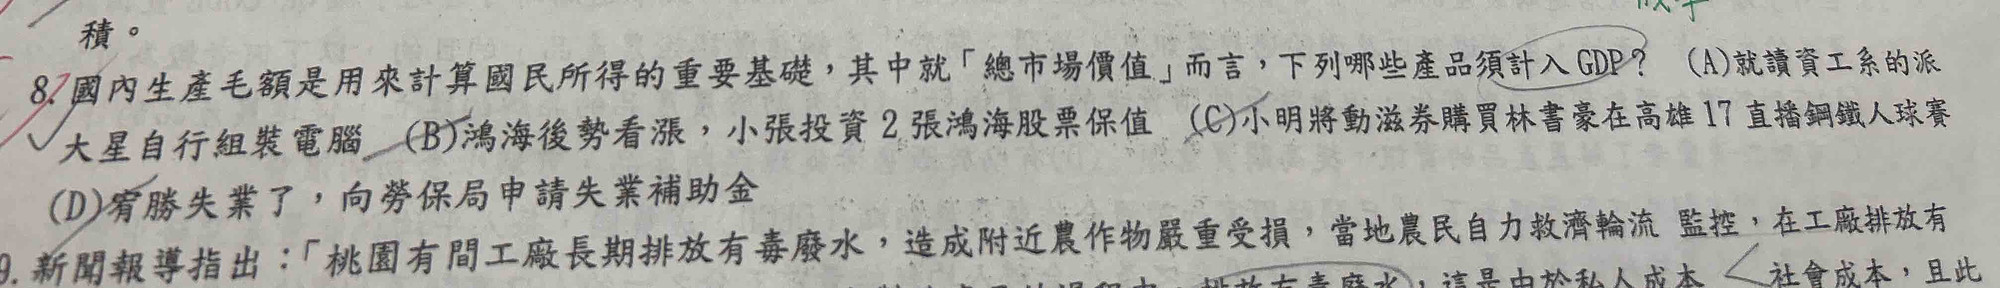 積。
8. 國內生產毛額是用來計算國民所得的重要基礎，其中就「總市場價值」而言，下列哪些產品須計入 GDP？ (A)就讀資工系的派
大星自行組裝電腦 (B)鴻海後勢看漲，小張投資 2 張鴻海股票保值 (C)小明將動滋券購買林書豪在高雄 17 直播鋼鐵人球賽
(D)宥勝失業了，向勞保局申請失業補助金
9. 新聞報導指出：「桃園有間工廠長期排放有毒廢水，造成附近農作物嚴重受損，當地農民自力救濟輪流 監控，在工廠排放有
排放有毒廢水，這是由於私人成本 < 社會成本，且此